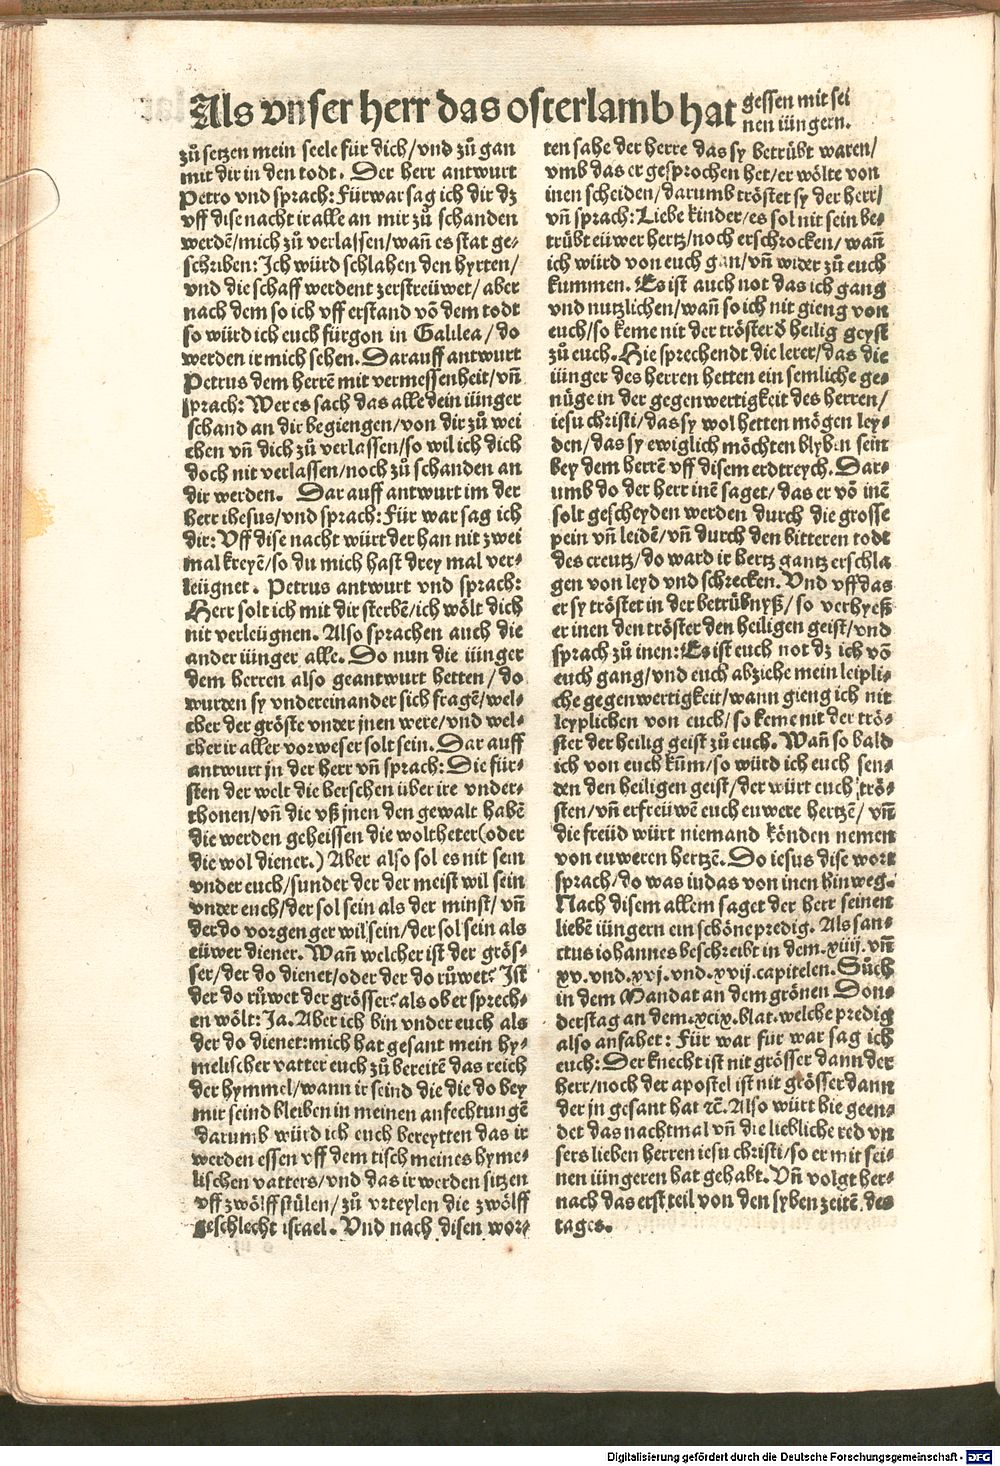 Als vnser herr das osterlamb hat gessen mit sei
nen iüngern.
zů setzen mein seele für dich/vnd zů gan
mit dir in den todt. Der herr antwurt
Petro vnd sprach: Fürwar sag ich dir dz
vff dise nacht ir alle an mir zů schanden
werdē/mich zů verlassen/wañ es stat ge⸗
schriben: Ich würd schlahen den hyrten/
vnd die schaff werdent zerstreüwet/aber
nach dem so ich vff erstand vō dem todt
so würd ich euch fürgon in Galilea/do
werden ir mich sehen. Darauff antwurt
Petrus dem herrē mit vermessenheit/vñ
sprach: Wer es sach das alle dein iünger
schand an dir begiengen/von dir zů wei
chen vñ dich zů verlassen/so wil ich dich
doch nit verlassen/noch zů schanden an
dir werden. Dar auff antwurt im der
herr ihesus/vnd sprach: Für war sag ich
dir: Vff dise nacht würt der han nit zwei
mal kreyē/so du mich hast drey mal ver⸗
leügnet. Petrus antwurt vnd sprach:
Herr solt ich mit dir sterbē/ich wölt dich
nit verleügnen. Also sprachen auch die
ander iünger alle. Do nun die iünger
dem herren also geantwurt hetten/do
wurden sy vndereinander sich fragē/wel⸗
cher der gröste vnder jnen were/vnd wel⸗
cher ir aller vorweser solt sein. Dar auff
antwurt jn der herr vñ sprach: Die für⸗
sten der welt die herschen über ire vnder⸗
thonen/vñ die vß jnen den gewalt habē
die werden geheissen die woltheter(oder
die wol diener.) Aber also sol es nit sein
vnder euch/sunder der der meist wil sein
vnder euch/der sol sein als der minst/vñ
der do vorgenger wil sein/der sol sein als
eüwer diener. Wañ welcher ist der grös⸗
ser/der do dienet/oder der do růwet? Ist
der do růwet der grösser? als ob er sprech⸗
en wölt: Ja. Aber ich bin vnder euch als
der do dienet: mich hat gesant mein hy⸗
melischer vatter euch zů bereitē das reich
der hymmel/wann ir seind die die do bey
mir seind bleiben in meinen anfechtungē
darumb würd ich euch bereytten das ir
werden essen vff dem tisch meines hyme⸗
lischen vatters/vnd das ir werden sitzen
vff zwölff stülen/zů vrteylen die zwölff
geschlecht israel. Vnd nach disen wor⸗
ten sahe der herre das sy betrübt waren/
vmb das er gesprochen het/er wölte von
inen scheiden/darumb tröstet sy der herr/
vñ sprach: Liebe kinder/es sol nit sein be⸗
trübt eüwer hertz/noch erschrocken/wañ
ich würd von euch gan/vñ wider zů euch
kummen. Es ist auch not das ich gang
vnd nutzlichen/wañ so ich nit gieng von
euch/so keme nit der tröster d̄ heilig geyst
zů euch. Hie sprechendt die lerer/das die
iünger des herren hetten ein semliche ge⸗
nüge in der gegenwertigkeit des herren/
iesu christi/das sy wol hetten mögen ley⸗
den/das sy ewiglich möchten blyben sein
bey dem herrē vff disem erdtreych. Dar⸗
umb do der herr inē saget/das er vō inē
solt gescheyden werden durch die grosse
pein vñ leidē/vñ durch den bitteren todt
des creutz/do ward ir hertz gantz erschla
gen von leyd vnd schrecken. Vnd vff das
er sy tröstet in der betrübnyß/so verhyeß
er inen den tröster den heiligen geist/vnd
sprach zů inen: Es ist euch not dz ich vō
euch gang/vnd euch abziehe mein leipli⸗
che gegenwertigkeit/wann gieng ich nit
leyplichen von euch/so keme nit der trö⸗
ster der heilig geist zů euch. Wañ so bald
ich von euch kūm/so würd ich euch sen⸗
den den heiligen geist/der würt euch trö⸗
sten/vñ erfreüwē euch euwere hertzē/vñ
die freüd würt niemand könden nemen
von euweren hertzē. Do iesus dise wort
sprach/do was iudas von inen hinweg.
Nach disem allem saget der herr seinen
liebē iüngern ein schöne predig. Als san⸗
ctus iohannes beschreibt in dem .xiiij. vñ
xv. vnd .xvj. vnd .xvij. capitelen. Sůch
in dem Mandat an dem grönen Don⸗
derstag an dem .xcix. blat. welche predig
also anfahet: Für war für war sag ich
euch: Der knecht ist nit grösser dann der
herr/noch der apostel ist nit grösser dann
der jn gesant hat ꝛc̄. Also würt hie geen⸗
det das nachtmal vñ die liebliche red vn
sers lieben herren iesu christi/so er mit sei⸗
nen iüngeren hat gehabt. Vñ volgt her⸗
nach das erst teil von den syben zeitē des
tages.
Digitalisierung gefördert durch die Deutsche Forschungsgemeinschaft - DFG